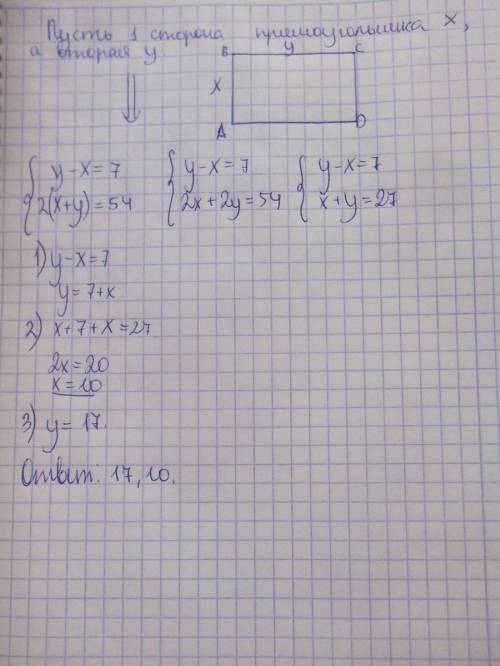 Пусть 1 сторона прямоугольника x,
а вторая y.
B y C
x
A D
{ y-x=7 { y-x=7 { y-x=7
{ 2(x+y)=54 { 2x+2y=54 { x+y=27
1) y-x=7
y=7+x
2) x+7+x=27
2x=20
x=10
3) y=17.
Ответ: 17, 10.